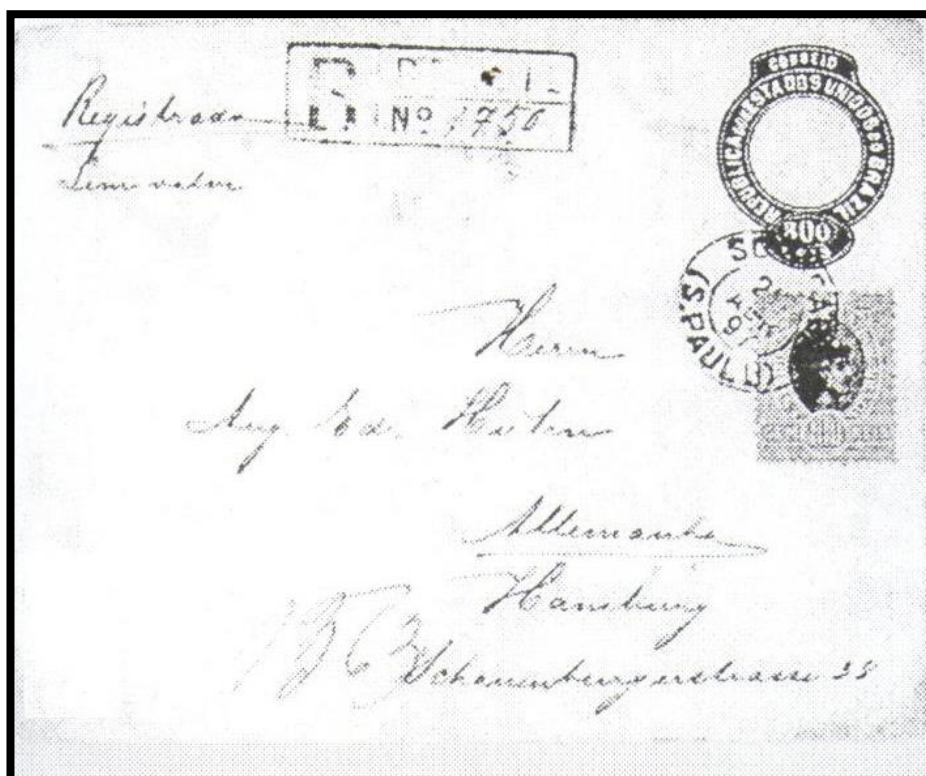 Registrado
Sem valor
R
Nº 1750
CORREIO
REPUBLICA DOS ESTADOS UNIDOS DO BRAZIL
300
(S. PAULO)
Herrn
Aug.
Allemanha
Hamburg
Schauenburgerstrasse 35